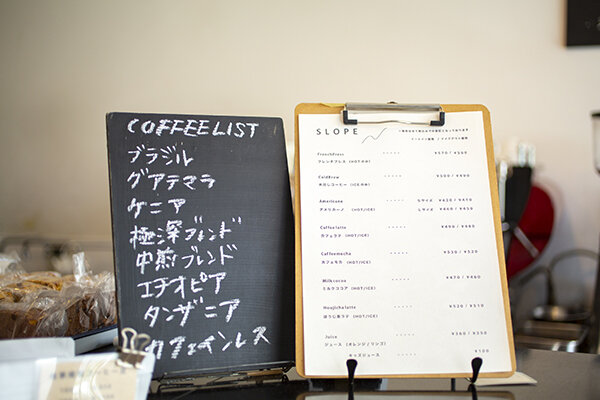 COFFEE LIST
ブラジル
グアテマラ
ケニア
極深ブレンド
中煎ブレンド
エチオピア
タンザニア
カフェインレス
SLOPE
FrenchPress ..... ¥570 / ¥560
フレンチプレス (HOTのみ)
ColdBrew ..... ¥500 / ¥490
水出しコーヒー (ICEのみ)
Americano ..... Sサイズ ¥420 / ¥410
アメリカーノ (HOT/ICE) Lサイズ ¥460 / ¥450
Coffeelatte ..... ¥490 / ¥480
カフェラテ (HOT/ICE)
Coffeemocha ..... ¥530 / ¥520
カフェモカ (HOT/ICE)
Milkcocoa ..... ¥470 / ¥460
ミルクココア (HOT/ICE)
Houjichalatte ..... ¥520 / ¥510
ほうじ茶ラテ (HOT/ICE)
Juice ..... ¥360 / ¥350
ジュース (オレンジ / リンゴ)
キッズジュース ..... ¥100